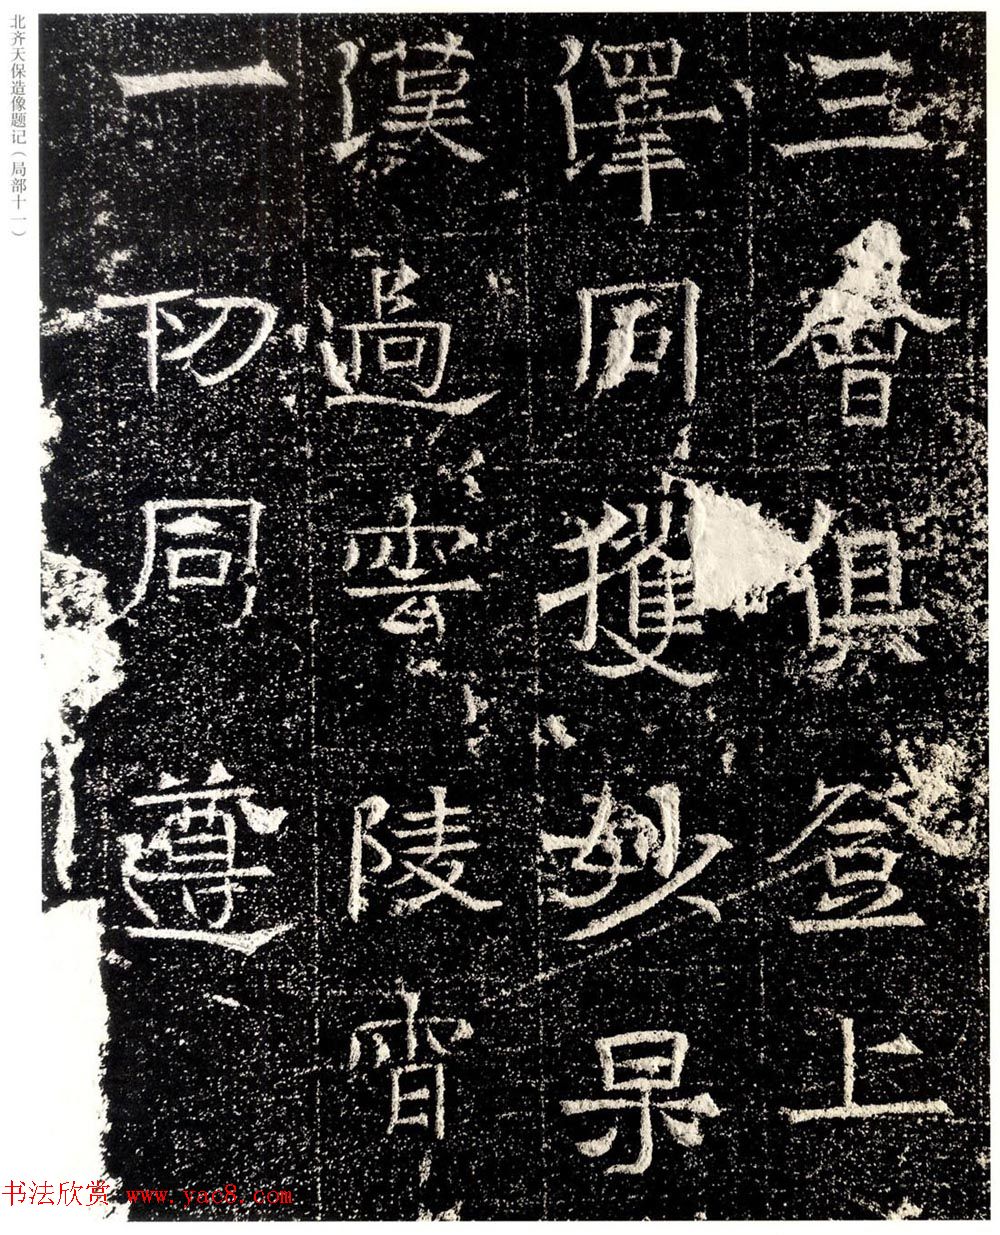 北齐天保造像题记（局部十一）
三會俱登上
澤同獲妙果
漢過雲陵霄
一切同遵
书法欣赏 www.yac8.com